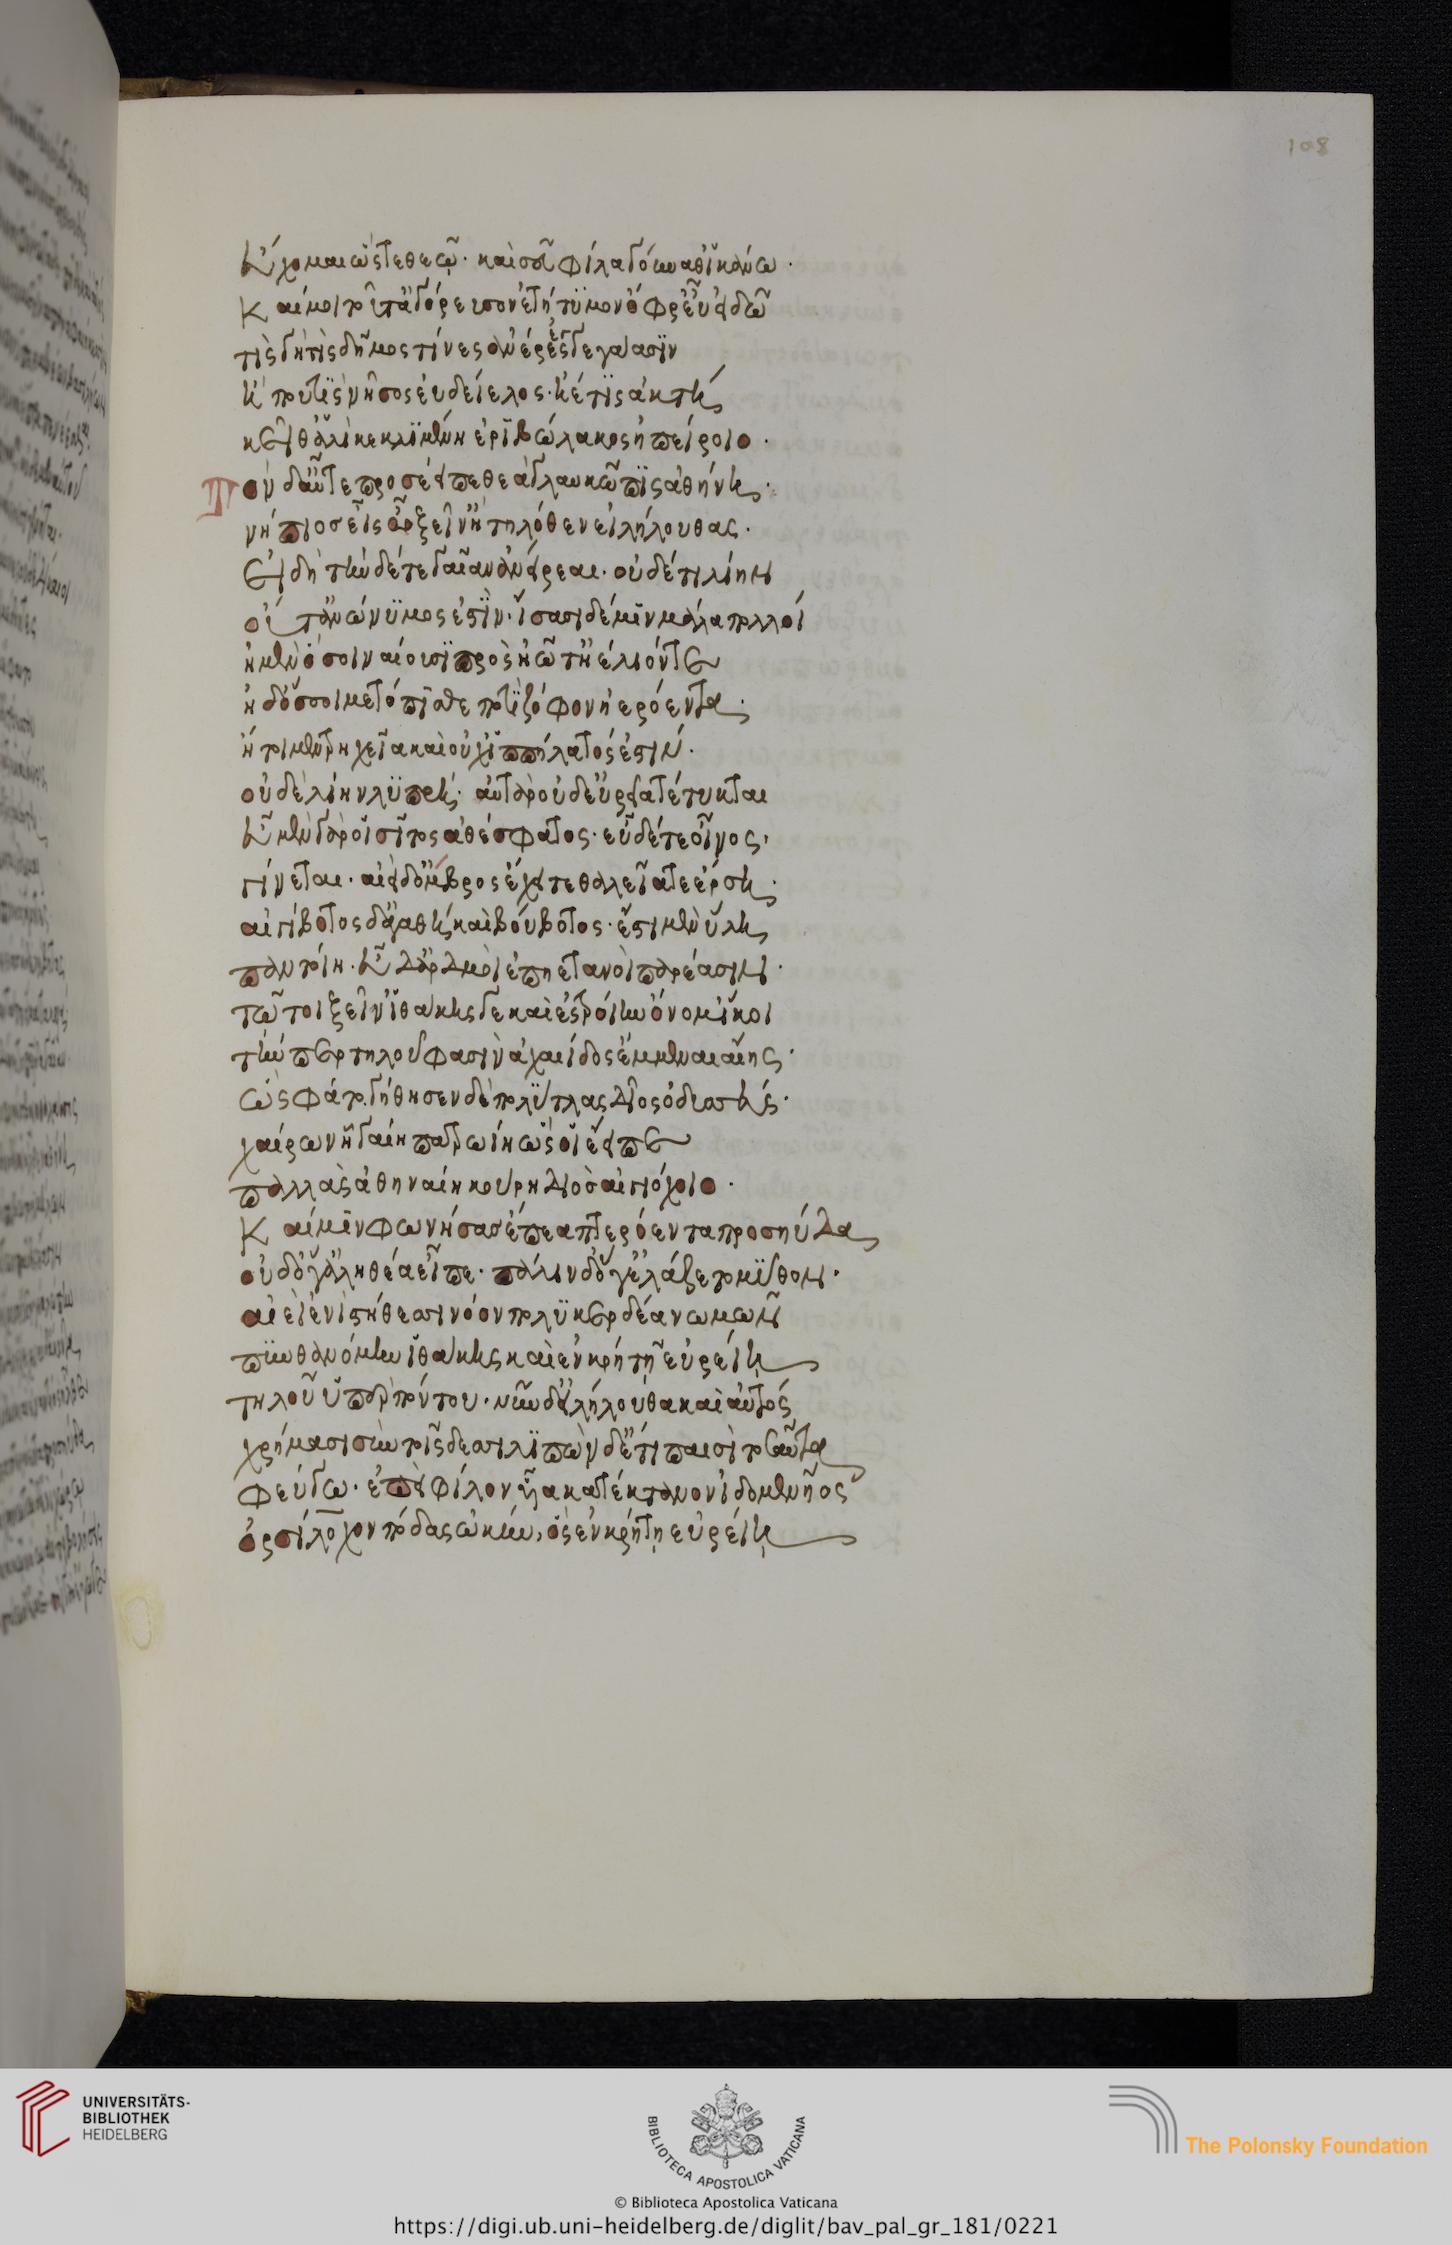 108
εὔχομαι ὥστε θεῷ· καί σευ φίλα γούναθ' ἱκάνω·
καί μοι τοῦτ' ἀγόρευσον ἐτήτυμον ὄφρ' εὖ εἰδῶ
τίς γῆ τίς δῆμος τίνες ἀνέρες ἐγγεγάασιν
ἤ πού τις νήσος εὐδείελος· ἠέ τις ἀκτή
κεῖθ' ἁλὶ κεκλιμένη ἐριβώλακος ἠπείροιο·
Τὸν δ' αὖτε προσέειπε θεὰ γλαυκῶπις ἀθήνη·
νήπιος εἶς ὦ ξεῖν' ἢ τηλόθεν εἰλήλουθας·
εἰ δὴ τήνδε τε γαῖαν ἀνείρεαι· οὐδέ τι λίην
οὕτω νώνυμος ἐστίν· ἴσασι δέ μιν μάλα πολλοί
ἠμὲν ὅσοι ναίουσι πρὸς ἠῶ τ' ἠέλιόν τε
ἠδ' ὅσσοι μετόπισθε ποτὶ ζόφον ἠερόεντα·
ἤτοι μὲν τρηχεῖα καὶ οὐχ ἱππήλατός ἐστιν·
οὐδὲ λίην λυπρή· αὐτὰρ οὐδ' εὐρεῖα τέτυκται
ἐν μὲν γάρ οἱ σῖτος ἀθέσφατος· ἐν δέ τε οἶνος·
γίνεται· αἰεὶ δ' ὄμβρος ἔχει τεθαλεῖά τε ἐέρση·
αἰγίβοτος δ' ἀγαθὴ καὶ βούβοτος· ἔστι μὲν ὕλη
παντοίη· ἐν δ' ἀρδμοὶ ἐπηετανοὶ παρέασιν·
τῷ τοι ξεῖν' ἰθάκης γε καὶ ἐς τροίην ὄνομ' ἵκει
τήν περ τηλοῦ φασὶν ἀχαιίδος ἔμμεναι αἴης·
ὣς φάτο γήθησεν δὲ πολύτλας δῖος ὀδυσσεύς·
χαίρων ᾗ γαίῃ πατρωίῃ ὥς οἱ ἔειπε
παλλὰς ἀθηναίη κούρη διὸς αἰγιόχοιο·
Καί μιν φωνήσας ἔπεα πτερόεντα προσηύδα
οὐδ' ὅγ' ἀληθέα εἶπε· πάλιν δ' ὅγε λάζετο μῦθον·
αἰεὶ ἐνὶ στήθεσσι νόον πολυκερδέα νωμῶν
πυνθανόμην ἰθάκης καὶ ἐν κρήτῃ εὐρείῃ
τηλοῦ ὑπὲρ πόντου· νῦν δ' εἰλήλουθα καὶ αὐτός
χρήμασι σὺν τοῖσδεσσι λιπὼν δ' ἔτι παισὶ τοσαῦτα
φεύγω· ἐπεὶ φίλον υἷα κατέκτανον ἰδομενῆος
ὀρσίλοχον πόδας ὠκύν, ὃς ἐν κρήτῃ εὐρείῃ
UNIVERSITÄTS-
BIBLIOTHEK
HEIDELBERG
BIBLIOTECA APOSTOLICA VATICANA
The Polonsky Foundation
© Biblioteca Apostolica Vaticana
https://digi.ub.uni-heidelberg.de/diglit/bav_pal_gr_181/0221